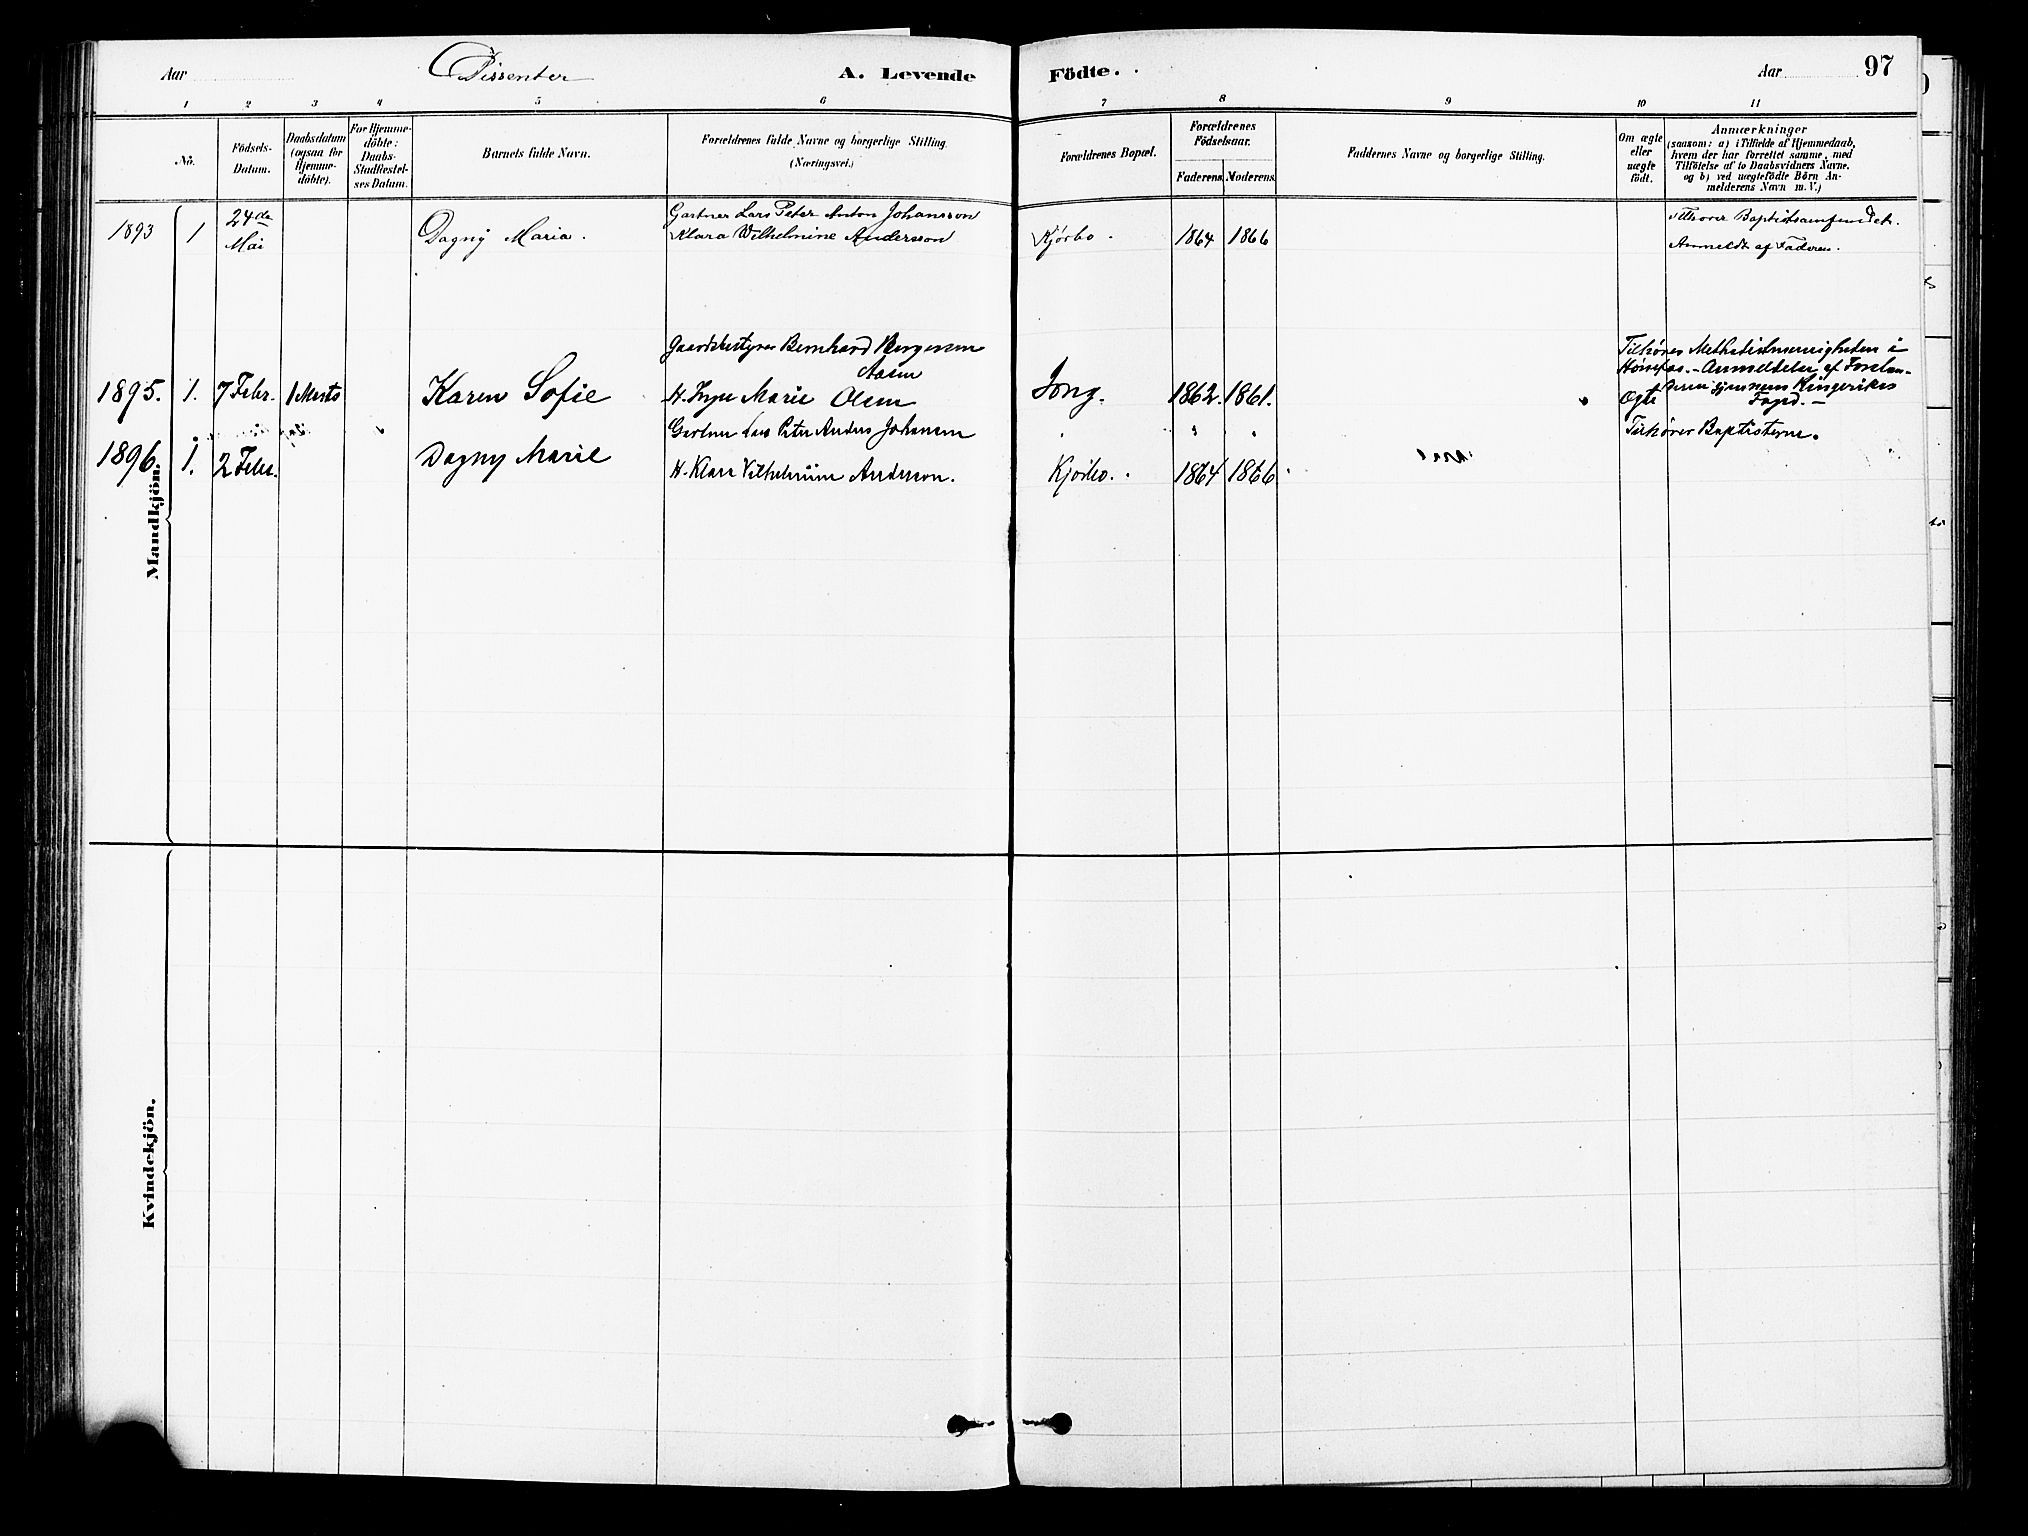 Aar Dissenter A. Levende Födte. Aar 97
1 2 3 4 5 6 7 8 9 10 11
No.
Födsels-
Datum.
Daabsdatum
(ogsaa for
Hjemme-
döbte).
For Hjemme-
döbte:
Daabs-
Stadfæstel-
ses Datum.
Barnets fulde Navn.
Forældrenes fulde Navne og borgerlige Stilling.
(Næringsvei.)
Forældrenes Bopæl.
Forældrenes
Födselsaar.
Faderens. Moderens.
Faddernes Navne og borgerlige Stilling.
Om ægte
eller
uægte
födt.
Anmærkninger
(saasom: a) i Tilfælde af Hjemmedaab,
hvem der har forrettet samme, med
Tilföielse af to Daabsvidners Navne.
og b) ved uægtefödte Börn An-
melderens Navn m. V.)
1893 1 24de
Mai
Dagny Maria.
Gartner Lars Peter Anton Johansson
Klara Wilhelmine Andersson
Kjørbo. 1864 1866
Tilhører Baptistsamfundet.
Anmeldt af Faderen.
1895. 1. 7 Febr. 1 Marts Karen Sofie
Gaardsbestyrer Bernhard
Aasen
H. Marie Olsen
Jong. 1862. 1861.
Ægte
Tilhører Methodistmenigheden i
Hønefos. - Anmeldelse af Forstan-
deren gjennem Ringerikes
Fogd. -
1896. 1. 2 Febr. Dagny Marie
Gartner Lars Peter Anders Johansen
H. Klara Vilhelmine Anderson.
Kjørbo. 1864 1866.
Tilhører Baptisterne.
Mandkjön.
Kvindekjön.